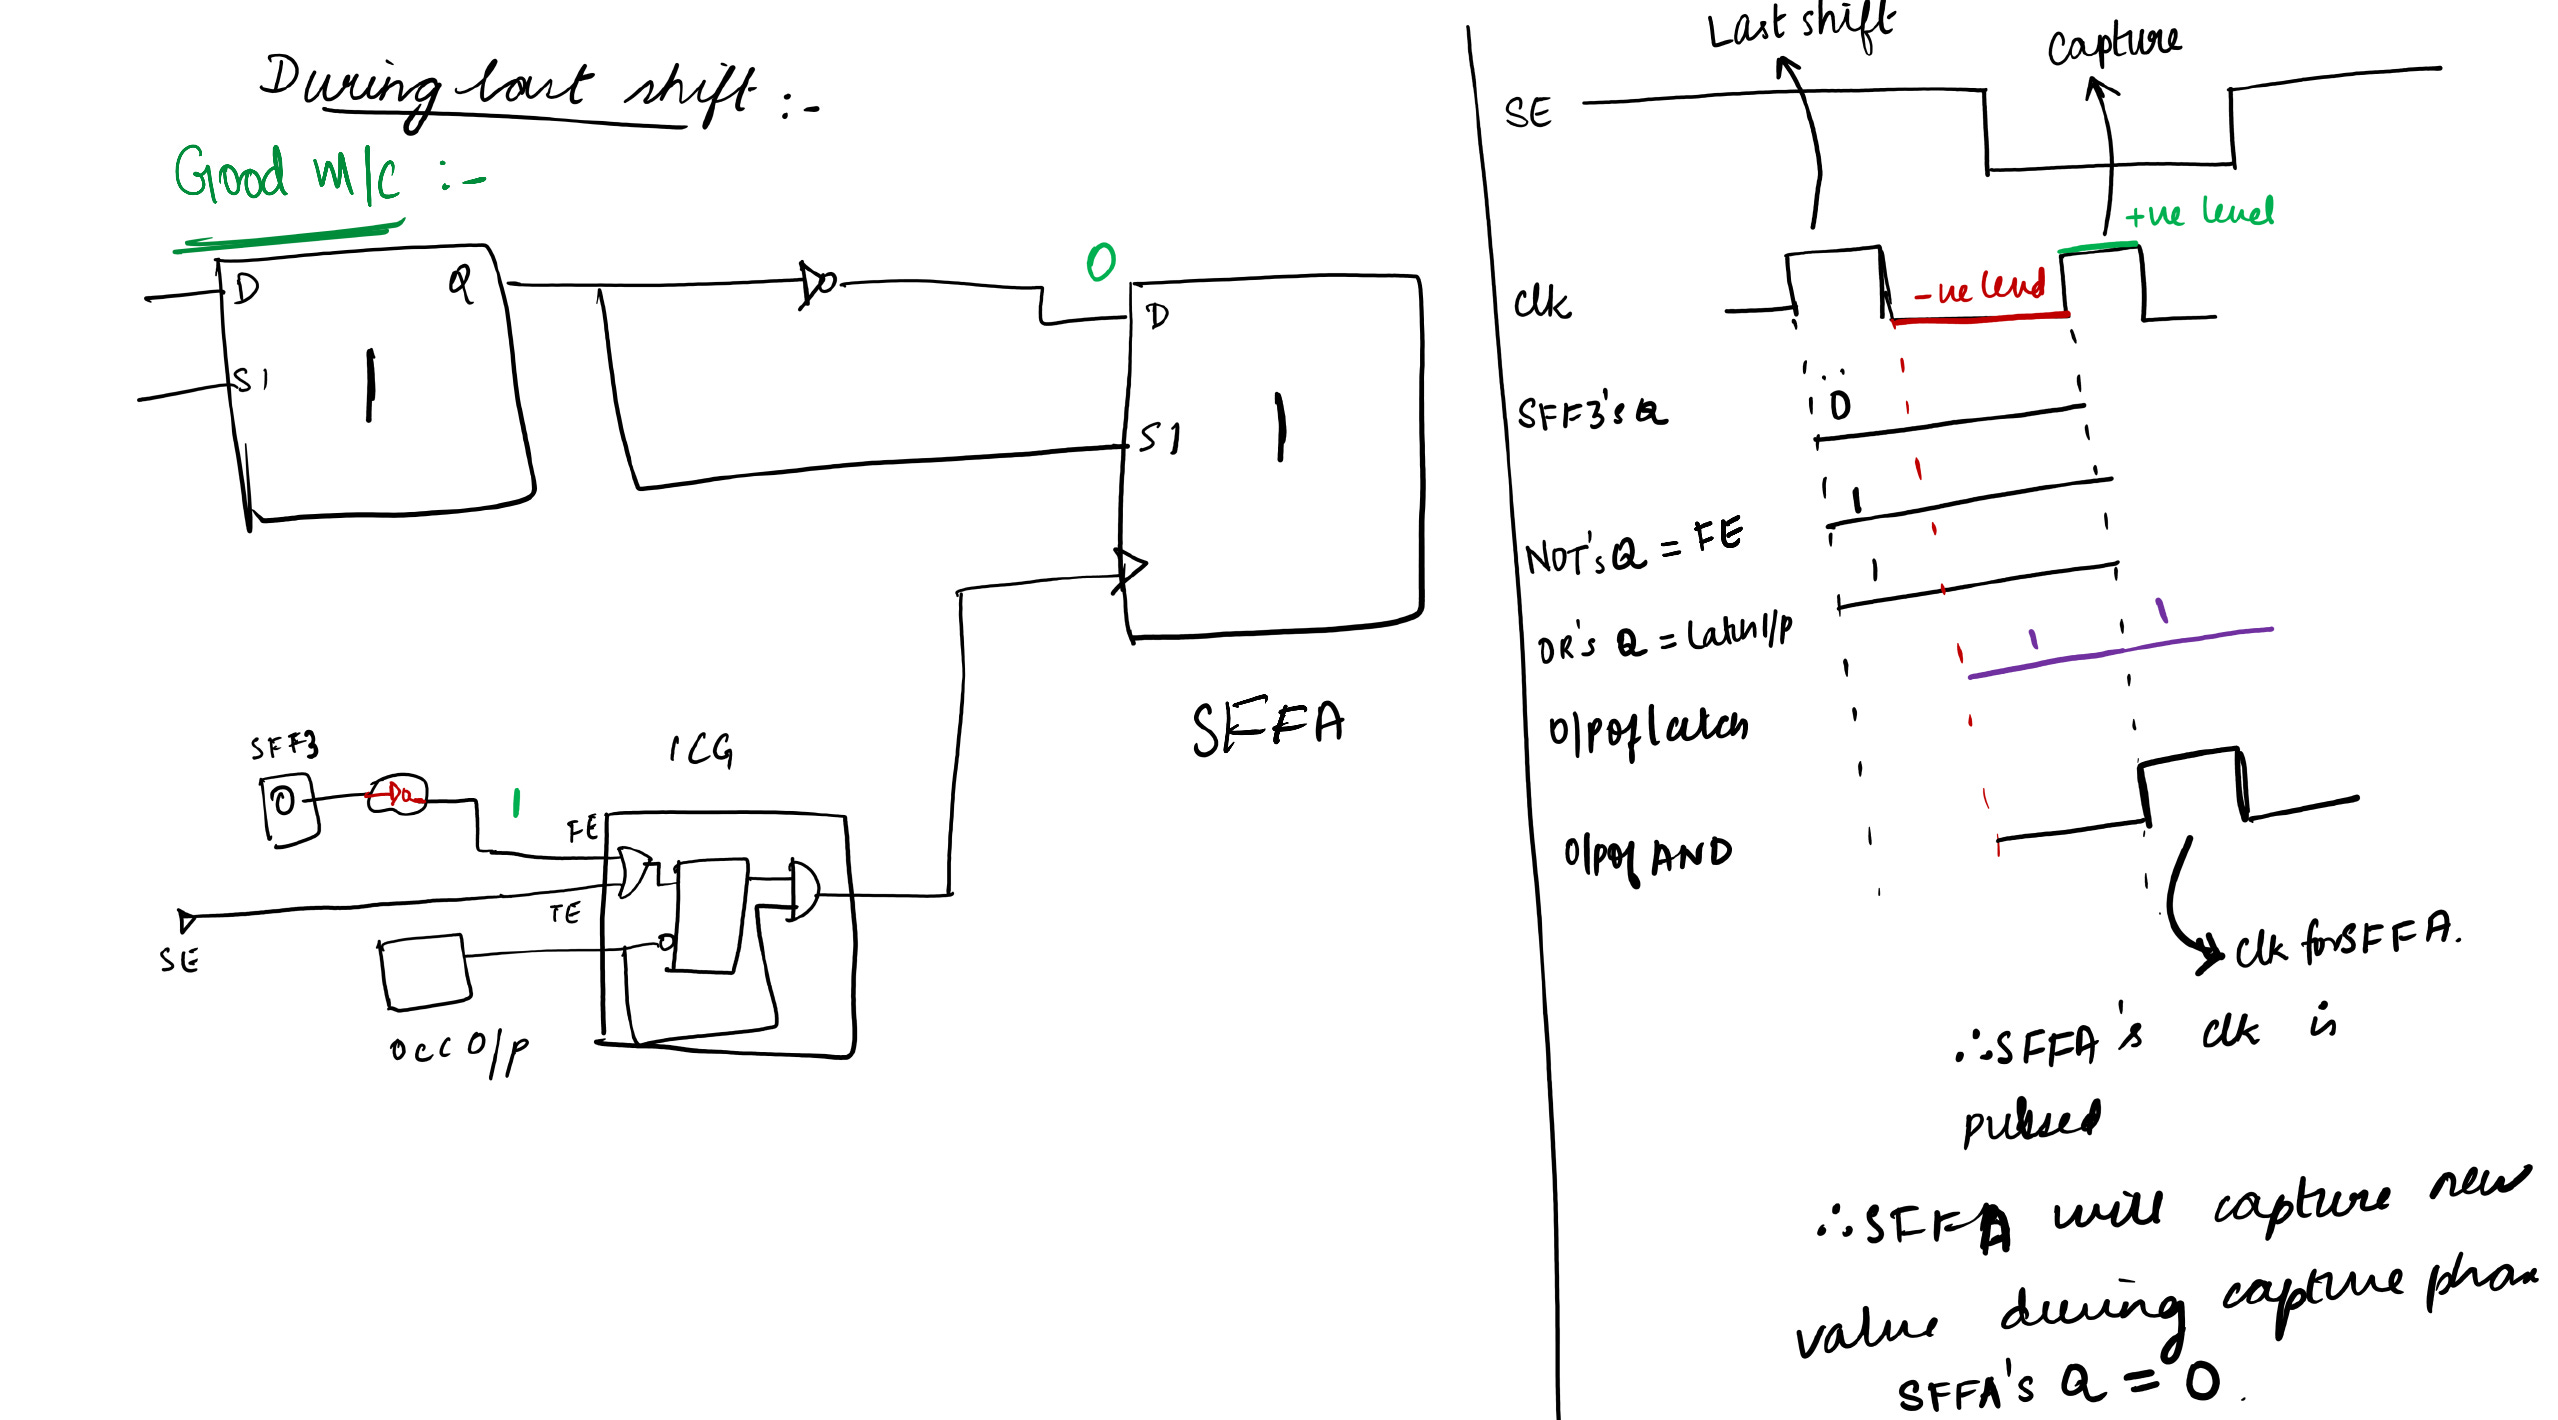 During last shift :-
Good M/C :-
D Q
SI
1
0
D
SI
1
SFFA
SFF3
0
1
ICG
FE
TE
SE
OCC O/P
Last shift
Capture
SE
+ve level
-ve level
clk
SFF3's Q
0
NOT's Q = FE
1
OR's Q = Latch I/p
1
O/P of latch
1 1
O/p of AND
clk for SFFA.
∴ SFFA's clk is
pulsed
∴ SFFA will capture new
value during capture phase
SFFA's Q = 0.